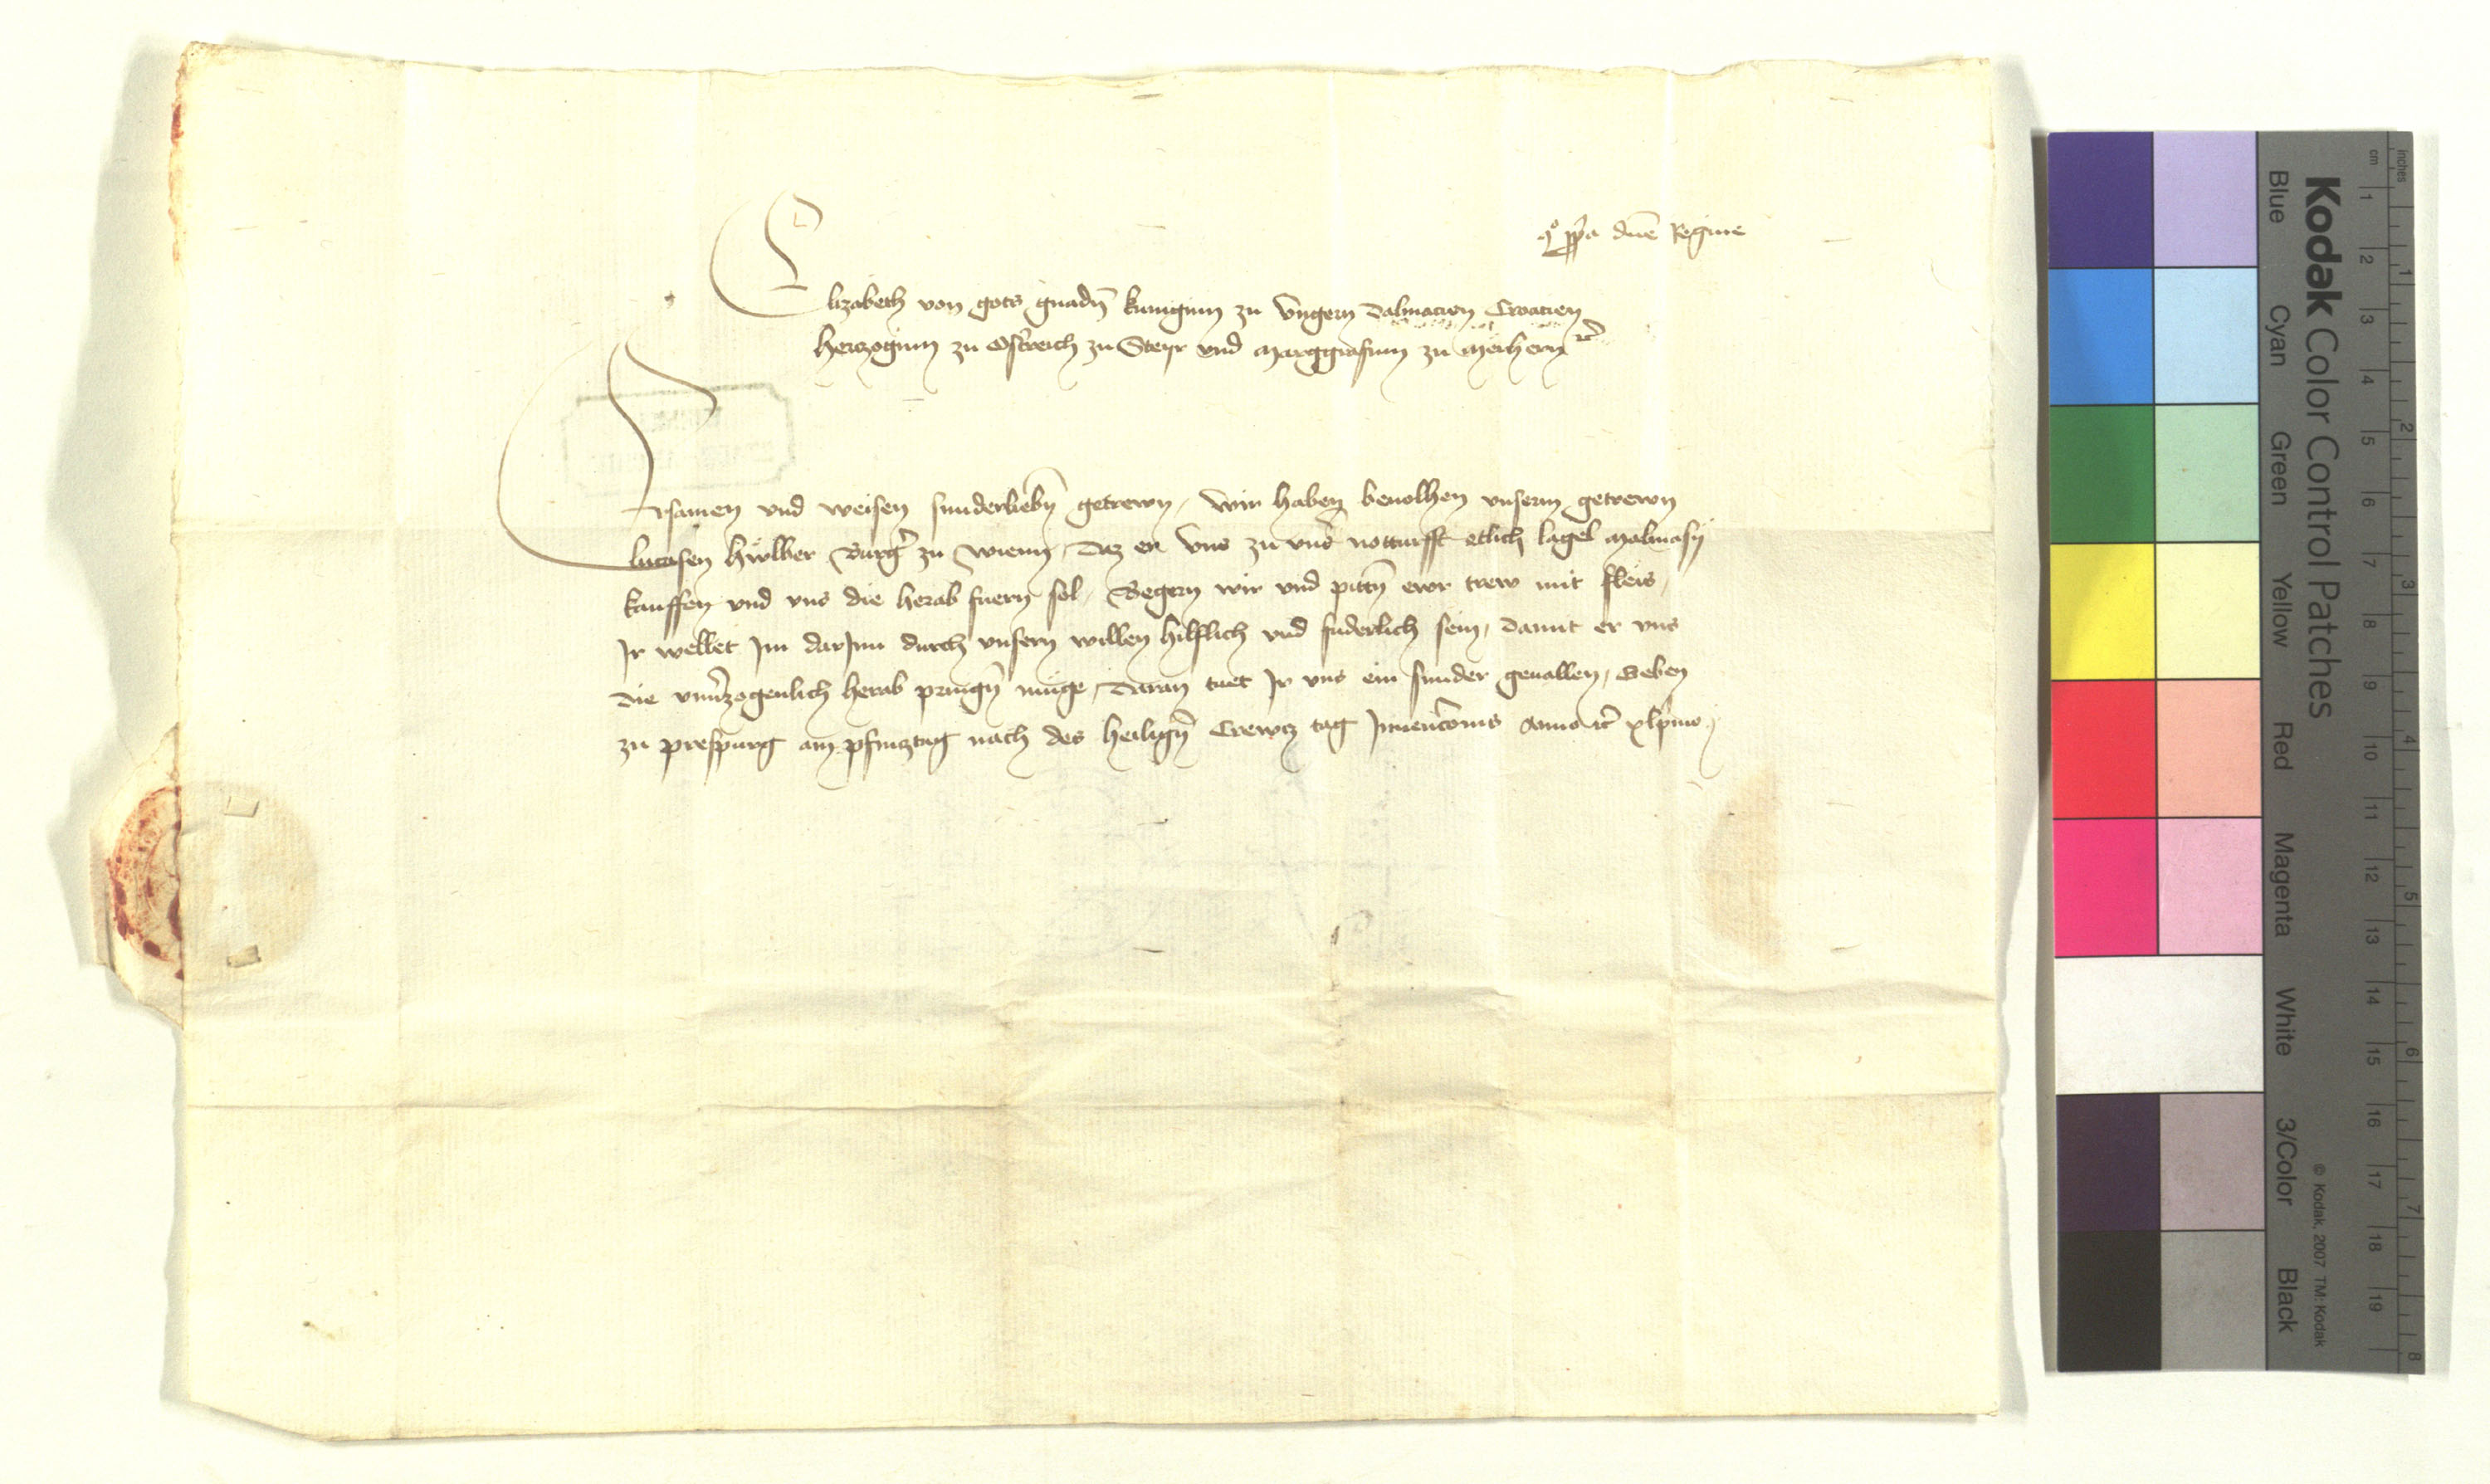 Co͞m p͞pa d͞ne Regine
Elizabeth von gots gnadn̄ kuniginn zu Vngern Dalmacien Croacien
Herczoginn zu Osterreich zu Steyr vnd Marggrafinn zu Merhern ꝛc̄
Ersamen vnd weisen sunderliebn̄ getrewn, Wir haben beuolhen vnserm getrewn
lucasen Burg̉ zu Wienn, Daz er vns zu vnẜ notturfft etlich lagel Malmasy
kauffen vnd vns die herab fuern sol, Begern wir vnd pittn̄ ewr trew mit fleis,
Ir wellet Im darInn durch vnsern willen hilflich vnd fuderlich sein, Damit er vns
die vnủzogenlich herab pringn̄ muge, Daran tuet Ir vns ein sunder geuallen, Geben
zu Prespurg am Pfincztag nach des heilign̄ Crewcz tag Inuenc̄onis Anno ꝛc̄ xlprimo,
Kodak Color Control Patches
Blue Cyan Green Yellow Red Magenta White 3/Color Black
© Kodak, 2007 TM: Kodak
cm 1 2 3 4 5 6 7 8 9 10 11 12 13 14 15 16 17 18 19
inches 1 2 3 4 5 6 7 8